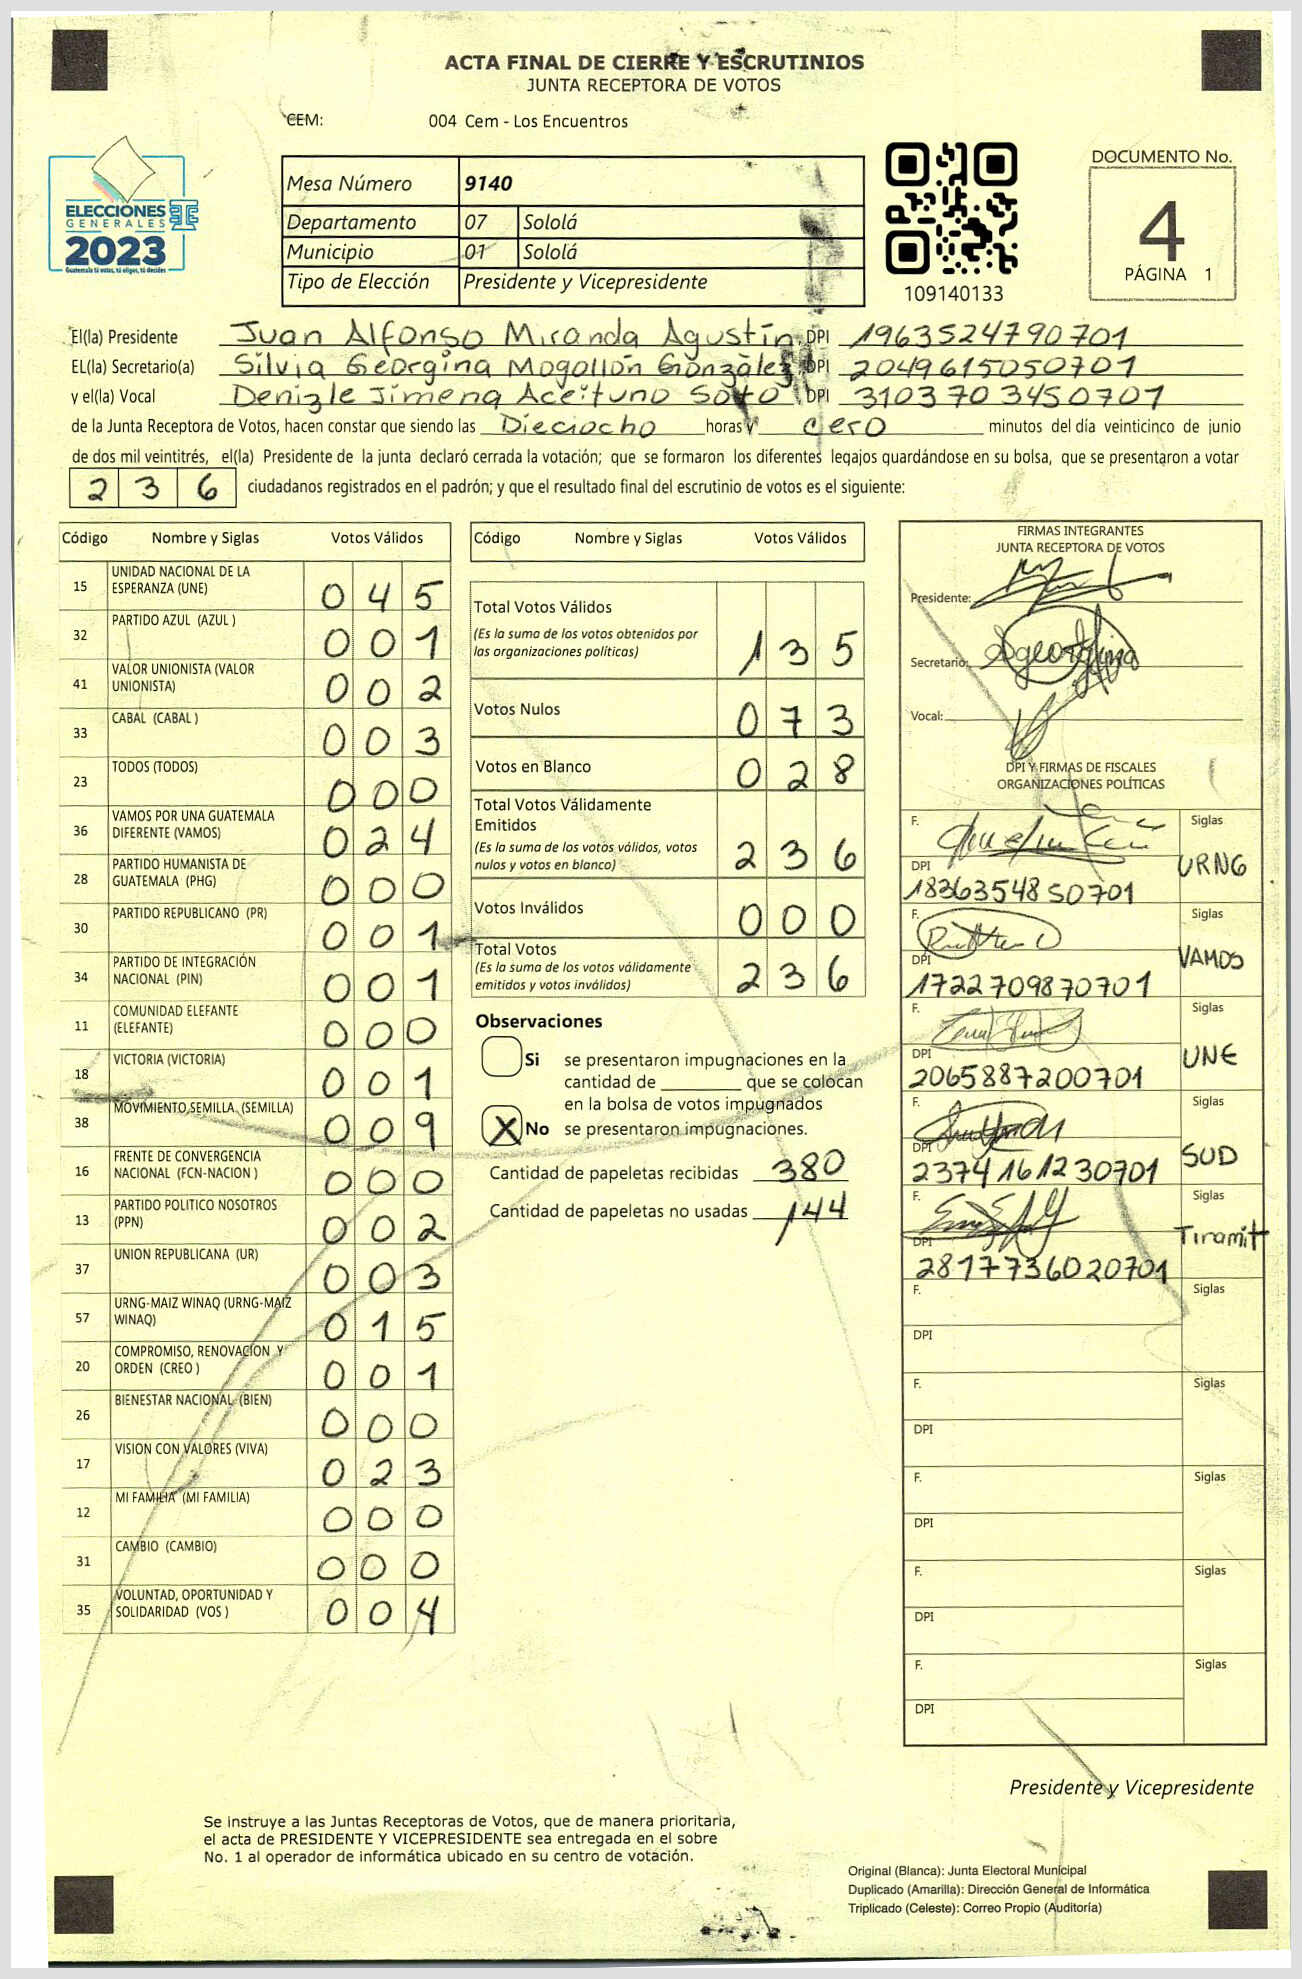 ACTA FINAL DE CIERRE Y ESCRUTINIOS
JUNTA RECEPTORA DE VOTOS
CEM: 004 Cem - Los Encuentros
ELECCIONES
GENERALES
2023
Guatemala tú votas, tú eliges, tú decides
Mesa Número 9140
Departamento 07 Sololá
Municipio 01 Sololá
Tipo de Elección Presidente y Vicepresidente
109140133
DOCUMENTO No.
4
PÁGINA 1
El(la) Presidente Juan Alfonso Miranda Agustín, DPI 1963524790701
EL(la) Secretario(a) Silvia Georgina Mogollón Gonzàlez, DPI 2049615050701
y el(la) Vocal Denizle Jimena Aceituno Soto, DPI 3103703450701
de la Junta Receptora de Votos, hacen constar que siendo las Dieciocho horas y cero minutos del día veinticinco de junio
de dos mil veintitrés, el(la) Presidente de la junta declaró cerrada la votación; que se formaron los diferentes legajos guardándose en su bolsa, que se presentaron a votar
236 ciudadanos registrados en el padrón; y que el resultado final del escrutinio de votos es el siguiente:
Código Nombre y Siglas Votos Válidos
15 UNIDAD NACIONAL DE LA ESPERANZA (UNE) 045
32 PARTIDO AZUL (AZUL ) 001
41 VALOR UNIONISTA (VALOR UNIONISTA) 002
33 CABAL (CABAL ) 003
23 TODOS (TODOS) 000
36 VAMOS POR UNA GUATEMALA DIFERENTE (VAMOS) 024
28 PARTIDO HUMANISTA DE GUATEMALA (PHG) 000
30 PARTIDO REPUBLICANO (PR) 001
34 PARTIDO DE INTEGRACIÓN NACIONAL (PIN) 001
11 COMUNIDAD ELEFANTE (ELEFANTE) 000
18 VICTORIA (VICTORIA) 001
38 MOVIMIENTO SEMILLA (SEMILLA) 009
16 FRENTE DE CONVERGENCIA NACIONAL (FCN-NACION ) 000
13 PARTIDO POLITICO NOSOTROS (PPN) 002
37 UNION REPUBLICANA (UR) 003
57 URNG-MAIZ WINAQ (URNG-MAIZ WINAQ) 015
20 COMPROMISO, RENOVACION Y ORDEN (CREO ) 001
26 BIENESTAR NACIONAL (BIEN) 000
17 VISION CON VALORES (VIVA) 023
12 MI FAMILIA (MI FAMILIA) 000
31 CAMBIO (CAMBIO) 000
35 VOLUNTAD, OPORTUNIDAD Y SOLIDARIDAD (VOS ) 004
Código Nombre y Siglas Votos Válidos
Total Votos Válidos 135
(Es la suma de los votos obtenidos por
las organizaciones políticas)
Votos Nulos 073
Votos en Blanco 028
Total Votos Válidamente
Emitidos 236
(Es la suma de los votos válidos, votos
nulos y votos en blanco)
Votos Inválidos 000
Total Votos 236
(Es la suma de los votos válidamente
emitidos y votos inválidos)
Observaciones
Si se presentaron impugnaciones en la
cantidad de ________ que se colocan
en la bolsa de votos impugnados
X No se presentaron impugnaciones.
Cantidad de papeletas recibidas 380
Cantidad de papeletas no usadas 144
FIRMAS INTEGRANTES
JUNTA RECEPTORA DE VOTOS
Presidente:
Secretario:
Vocal:
DPI Y FIRMAS DE FISCALES
ORGANIZACIONES POLÍTICAS
F. Siglas
DPI URNG
1836354850701
F. Siglas
DPI VAMOS
1722709870701
F. Siglas
DPI UNE
2065887200701
F. Siglas
DPI SUD
2374161230701
F. Siglas
DPI Tiramit
2817736020701
F. Siglas
DPI
F. Siglas
DPI
F. Siglas
DPI
F. Siglas
DPI
F. Siglas
DPI
Presidente y Vicepresidente
Se instruye a las Juntas Receptoras de Votos, que de manera prioritaria,
el acta de PRESIDENTE Y VICEPRESIDENTE sea entregada en el sobre
No. 1 al operador de informática ubicado en su centro de votación.
Original (Blanca): Junta Electoral Municipal
Duplicado (Amarilla): Dirección General de Informática
Triplicado (Celeste): Correo Propio (Auditoría)